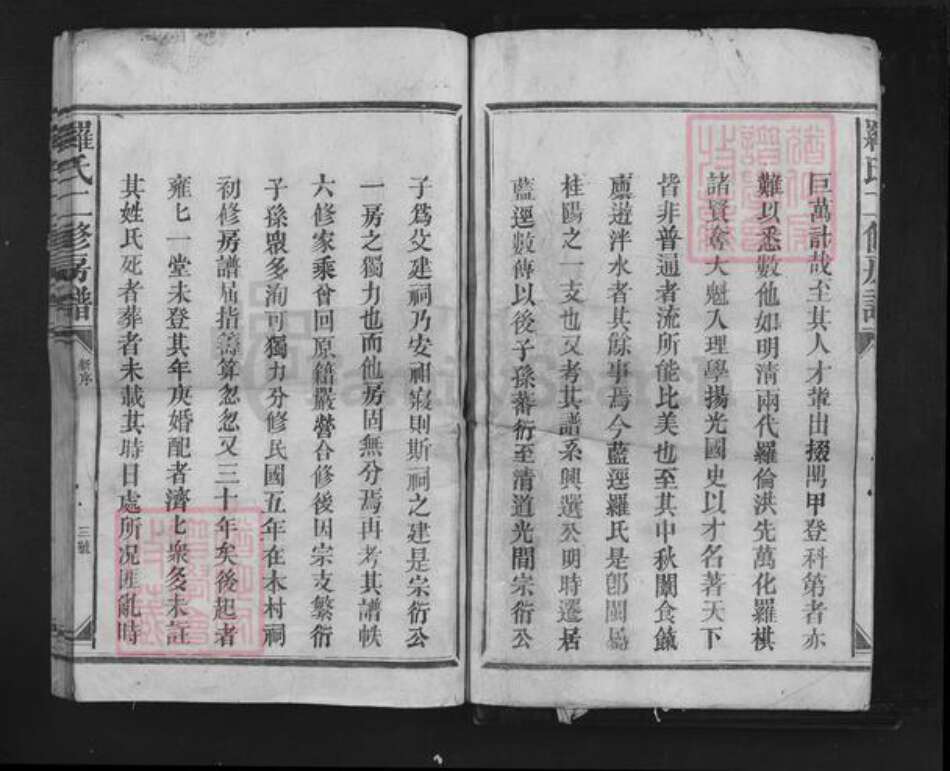 羅氏二修房譜
巨萬計哉至其人才輩出掇鼎甲登科第者亦
難以悉數他如明清兩代羅倫洪先萬化羅棋
諸賢奪大魁入理學揚光國史以才名著天下
皆非普通者流所能比美也至其中秋闈食餼
廪遊泮水者其餘事焉今藍逕羅氏是卽閩屬
桂陽之一支也又考其譜系興選公明時遷居
藍逕數傳以後子孫蕃衍至清道光間宗衍公
子爲父建祠乃安祖寢則斯祠之建是宗衍公
一房之獨力也而他房固無分焉再考其譜帙
六修家乘曾回原籍嚴營合修後因宗支繁衍
子孫衆多洵可獨力分修民國五年在本村祠
初修房譜屈指籌算忽忽又三十年矣後起者
雍匕一堂未登其年庚婚配者濟匕衆多未註
其姓氏死者葬者未載其時日處所况匪亂時
羅氏二修房譜
新序
三號
FamilySearch